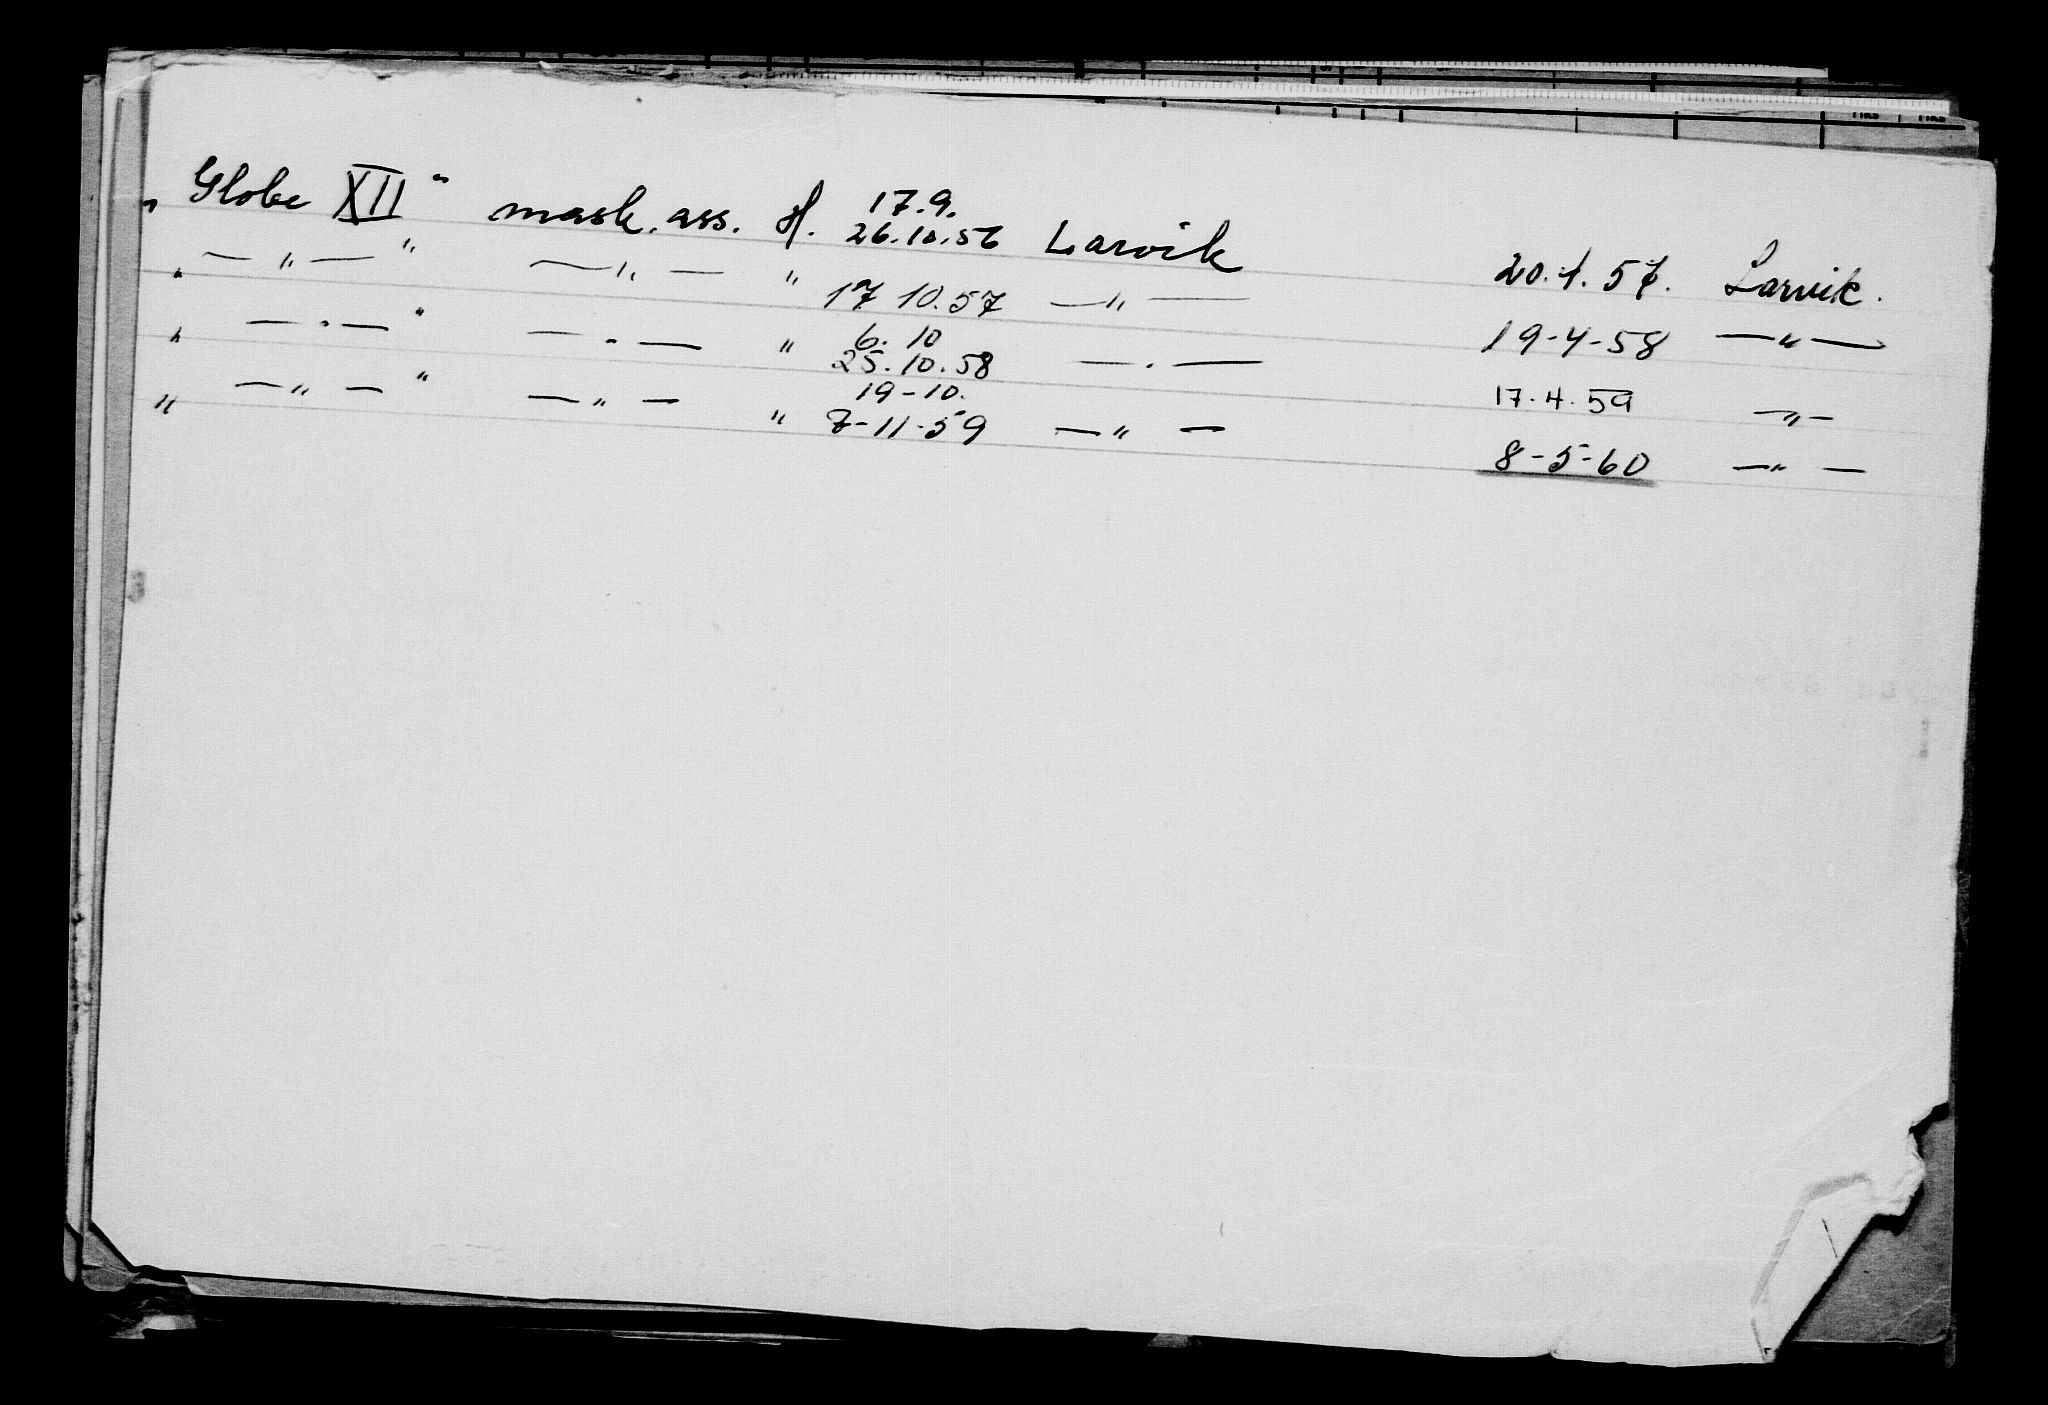 „Globe XII“ mask. ass. H. 17.9. 26.10.56 Larvik 20.4.57. Larvik.
„ — „ — “ — „ — " 17 10.57 — „ — 19-4-58 — „ —
„ — „ — “ — „ — " 6. 10 25.10.58 — „ — 17.4.59 — „ —
„ — „ — “ — „ — " 19-10. 7-11-59 — „ — 8-5-60 — „ —